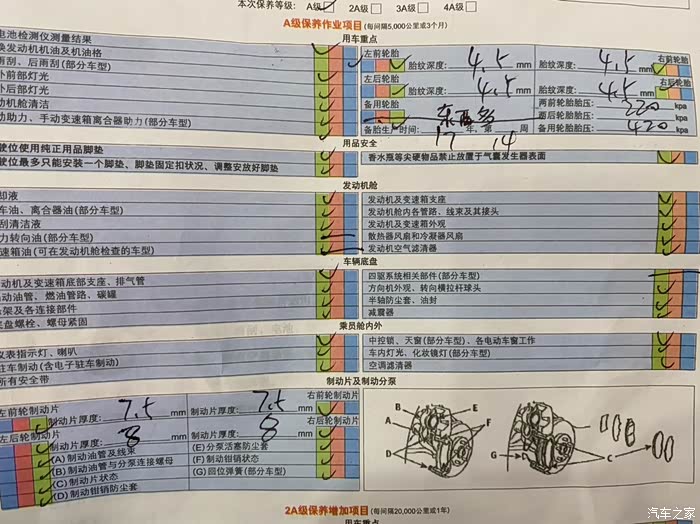 本次保养等级: A级 2A级 3A级 4A级
A级保养作业项目 (每间隔5,000公里或3个月)
用车重点
电池检测仪测量结果
换发动机机油及机油格
雨刮、后雨刮(部分车型)
外前部灯光
外后部灯光
动机舱清洁
动助力、手动变速箱离合器助力(部分车型)
左前轮胎 胎纹深度: 4.5 mm 胎纹深度: 4.5 mm 右前轮胎
左后轮胎 胎纹深度: 4.5 mm 胎纹深度: 4.5 mm 右后轮胎
备用轮胎 两前轮胎胎压: 220 kpa
两后轮胎胎压: kpa
备胎生产时间: 17 年, 第 14 周 备用轮胎胎压: 420 kpa
用品安全
驶位使用纯正用品脚垫
驶位最多只能安装一个脚垫、脚垫固定扣状况、调整安放好脚垫
香水瓶等尖硬物品禁止放置于气囊发生器表面
发动机舱
却液
车油、离合器油(部分车型)
刮清洁液
力转向油(部分车型)
速箱油(可在发动机舱检查的车型)
发动机及变速箱支座
发动机舱内各管路、线束及其接头
发动机及变速箱外观
散热器风扇和冷凝器风扇
发动机空气滤清器
车辆底盘
动机及变速箱底部支座、排气管
动油管、燃油管路、碳罐
架及各连接部件
底盘螺栓、螺母紧固
四驱系统相关部件(部分车型)
方向机外观、转向横拉杆球头
半轴防尘套、油封
减震器
乘员舱内外
仪表指示灯、喇叭
驻车制动(含电子驻车制动)
所有安全带
中控锁、天窗(部分车型)、各电动车窗工作
车内灯光、化妆镜灯(部分车型)
空调滤清器
制动片及制动分泵
左前轮制动片 制动片厚度: 7.5 mm 制动片厚度: 7.5 mm 右前轮制动片
左后轮制动片 制动片厚度: 8 mm 制动片厚度: 8 mm 右后轮制动片
(A) 制动油管及线束
(B) 制动油管与分泵连接螺母
(C) 制动片状态
(D) 制动钳销防尘套
(E) 分泵活塞防尘套
(F) 制动钳销状态
(G) 回位弹簧(部分车型)
B E
A F
D G D C
2A级保养增加项目 (每间隔20,000公里或1年)
用车重点
汽车之家